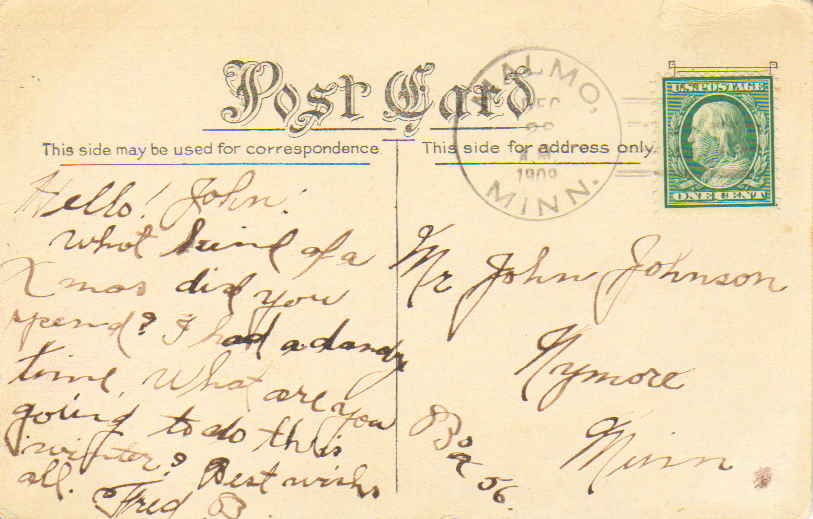 Post Card
MALMO,
DEC
28
A.M.
1909
MINN.
U.S.POSTAGE
ONE CENT
This side may be used for correspondence
This side for address only.
Hello! John!
What kind of a
Xmas did you
spend? I had a dandy
time, What are you
going to do this
winter? Best wishs
all. Fred B.
Mr John Johnson
Nymore
Minn
Box 56.